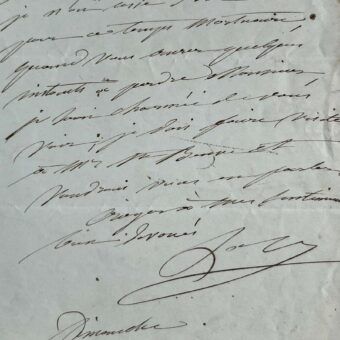 je
pour ce temps
quand vous aurez quelques
instants à perdre Monsieur
je serai charmée de vous
voir ; je dois faire visite
à Mr
voudrais vous en parler
croyez à mes sentimens
bien dévoués
Dimanche